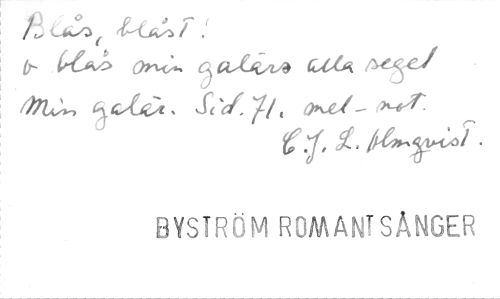 Blås, blåst!
o blås min galärs alla segel
Min galär. Sid. 71. mel-not.
C. J. L. Almqvist.
BYSTRÖM ROMANT SÅNGER